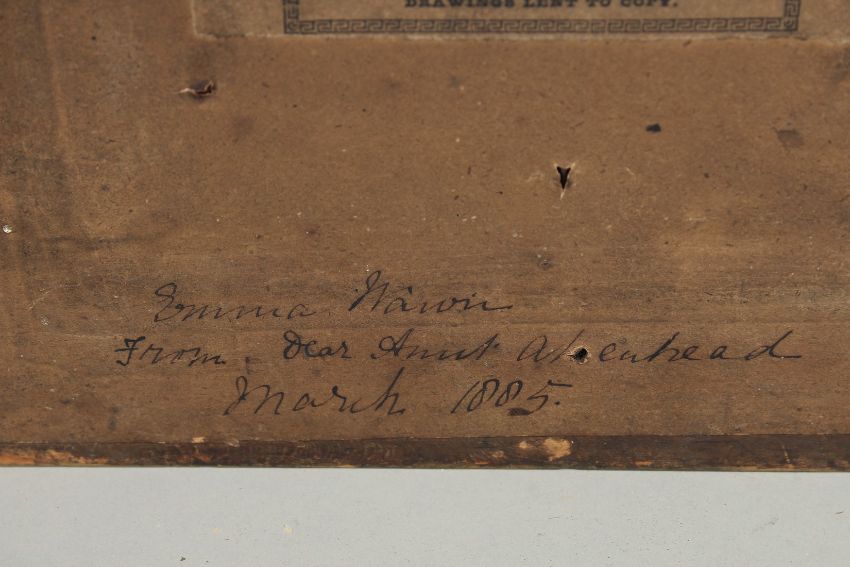 DRAWINGS LENT TO COPY.
Emma
From Dear Aunt
March 1885.